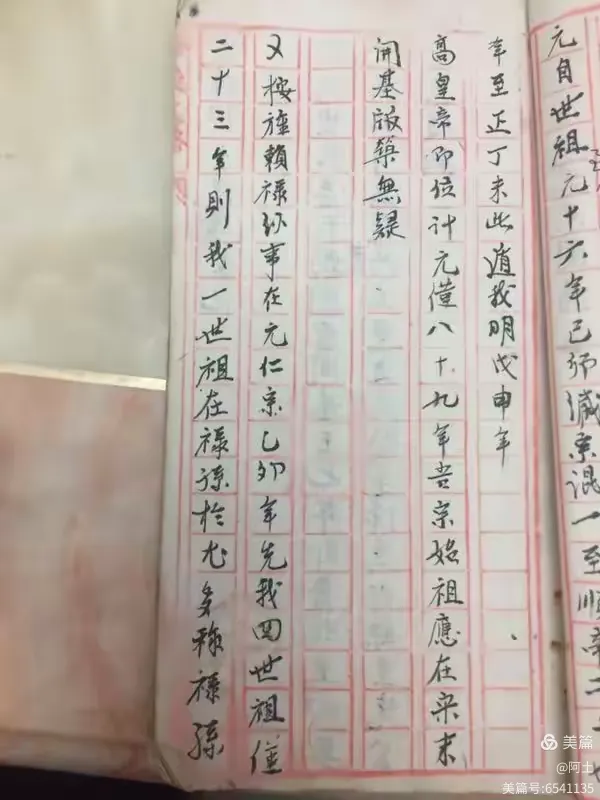 元自世祖元十六年己卯滅宋混一至順帝二
年至正丁未此道我明戊申年
高皇帝即位計元僅八十九年吾宗始祖應在宋末
開基版築無疑
又按旌賴祿孙事在元仁宗乙卯年先我四世祖僅
二十三年則我一世祖在祿孫於尤多称祿孫
美篇
@阿土
美篇号:6541135